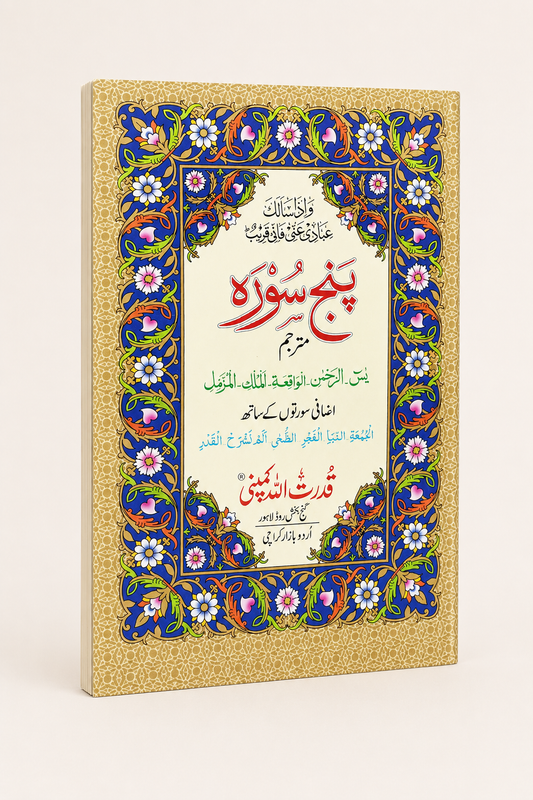 وَاِذَا سَاَلَكَ
عِبَادِیْ عَنِّیْ فَاِنِّیْ قَرِیْبٌ ؕ
پَنج سُوْرَہ
مترجم
یٰسٓ۔ الرَّحْمٰن۔ الْوَاقِعَةِ۔ الْمُلْك۔ الْمُزَمِّل
اضافی سورتوں کے ساتھ
الْجُمُعَةِ۔ النَّبَاِ الْفَجْرِ الضُّحٰی اَلَمْ نَشْرَحْ الْقَدْرِ
قُدرت اللّٰہ کمپنی ®
گنج بخش روڈ لاہور
اُردو بازار کراچی